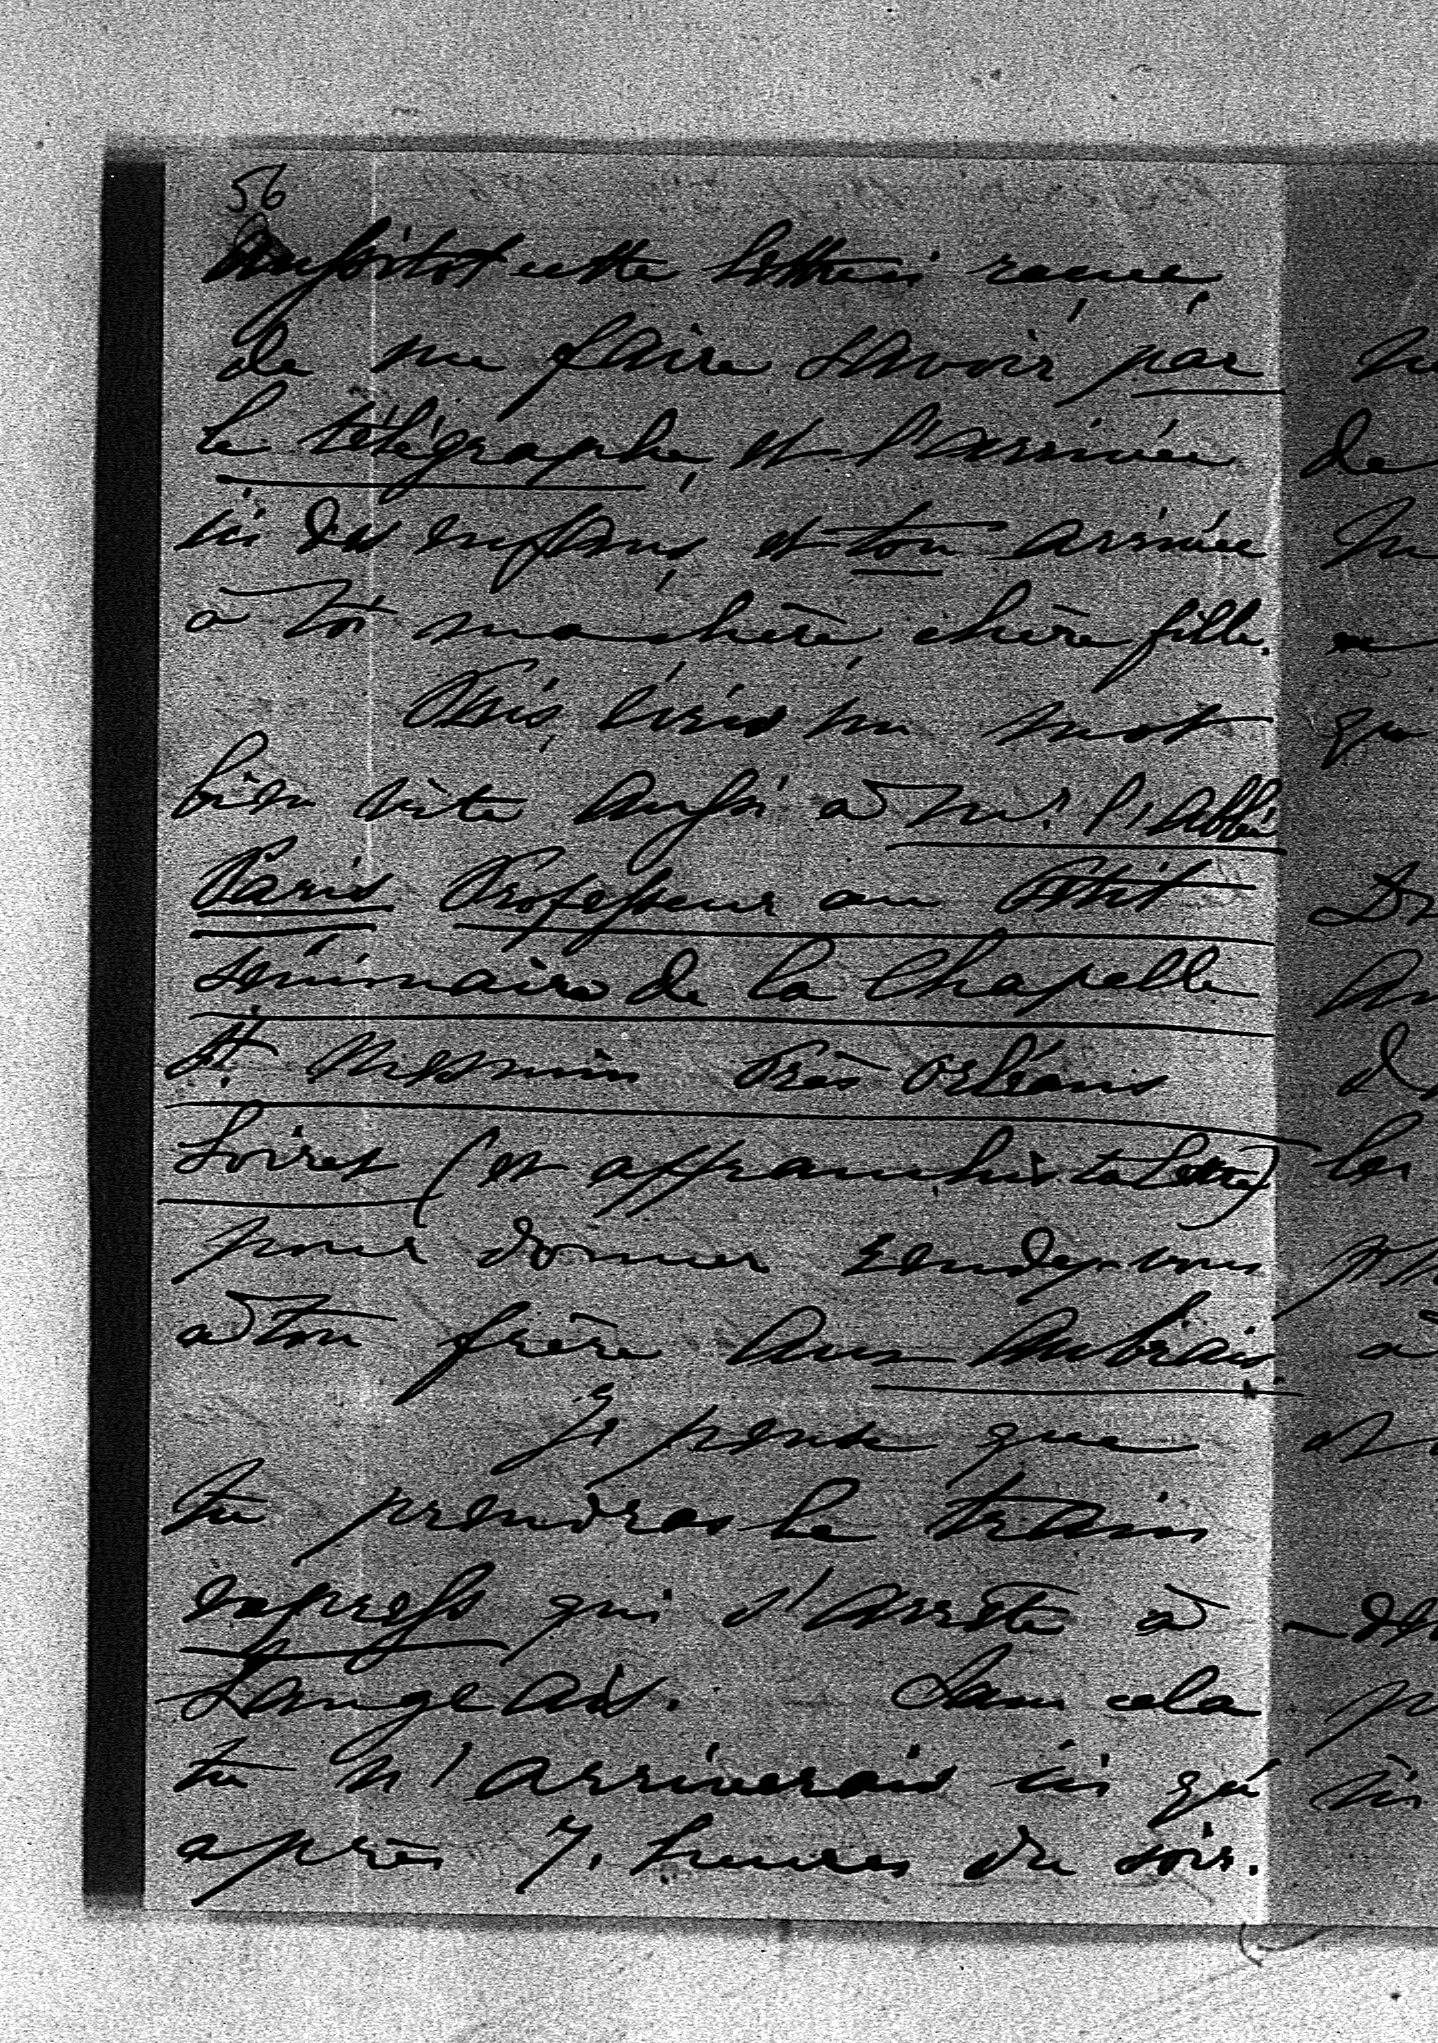 56
Aussitot cette lettre ci reçue,
de me faire savoir par
le télégraphe, et l'arrivée
ici des enfans, et ton arrivée
à toi ma chère, chère fille.
Puis, écris un mot
bien vite aussi à Mr. l'abbé
Paris Professeur au Petit
séminaire de la Chapelle
St. Mesmin Près Orléans
Loiret (et affranchis ta lettre)
pour donner rendez-vous
à ton frère aux Aubrais
Je pense que
tu prendras le train
express qui s'arrête à
Langeais. Sans cela
tu n'arriverais ici qu'
après 7. heures du soir.